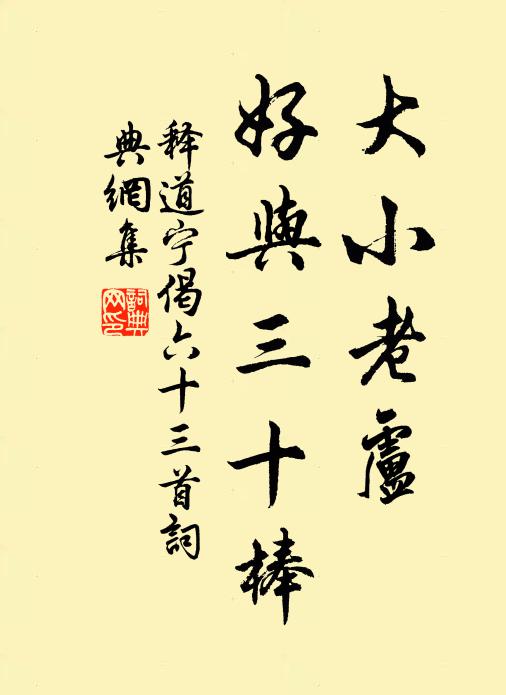 大小老盧
好與三十棒
释道宁偈六十三首詞
典網集
詞典
网印